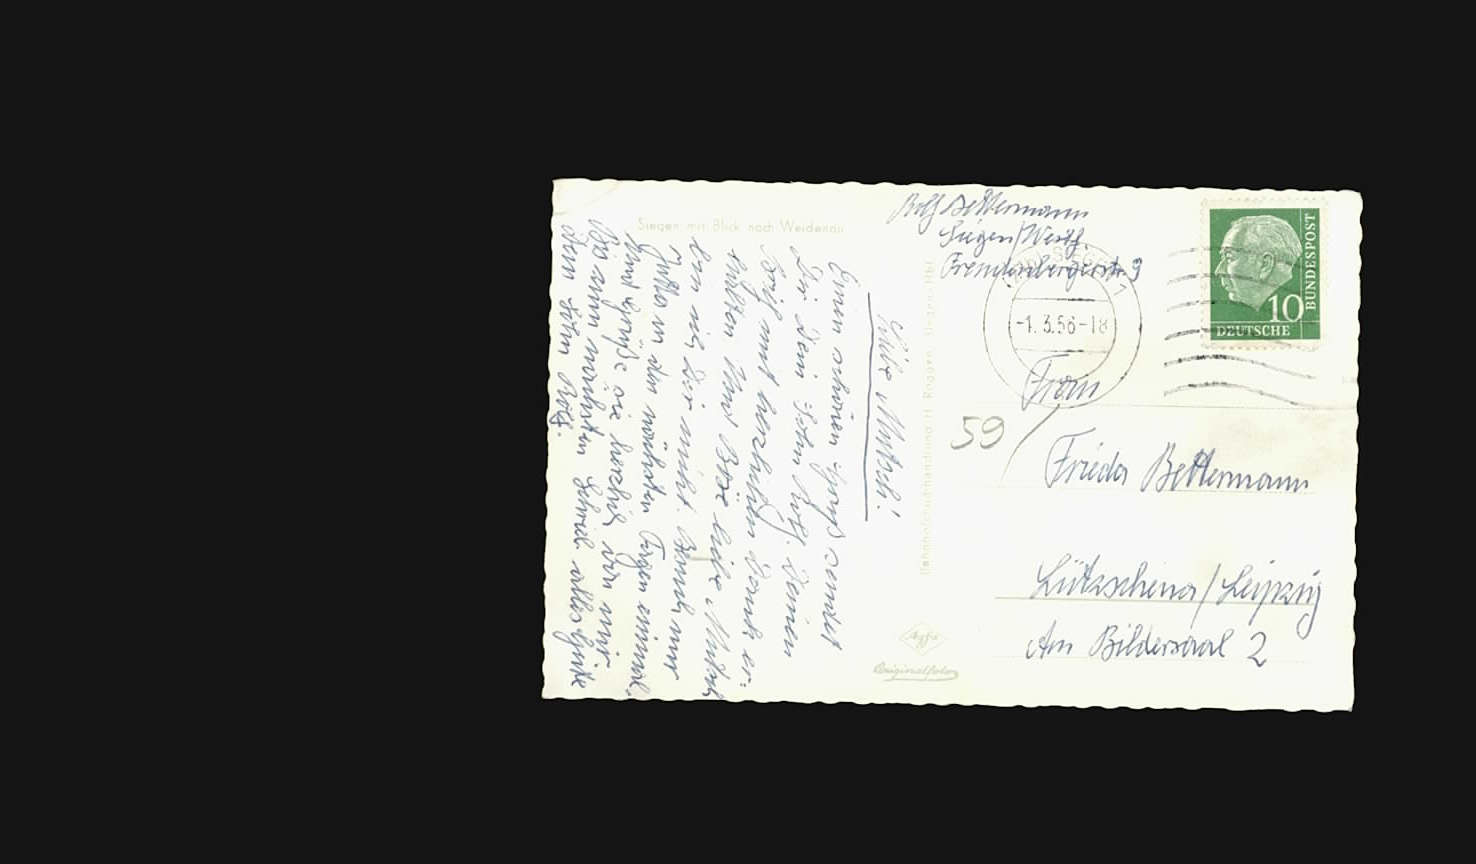 Siegen mit Blick nach Weidenau
Liebe Mutsch!
Einen schönen Gruß sendet
Dir Dein Sohn Rolf. Deinen
Brief mit herzlichen Dank er-
halten. Und liebe Mutsch
Dir nicht.
in den nächsten Tagen einmal.
Und Grüße sie herzlich von mir
Bis zum nächsten Schreib alles Gute
Dein Sohn Rolf.
Bahnhofsbuchhandlung H. Roggen, Siegen Hbf.
Agfa
Originalfoto
Rolf Bettermann
Siegen/Westf.
Freudenbergerstr. 9
SIEGEN 1
-1. 3.56-18
10
DEUTSCHE
BUNDESPOST
Frau
59
Frieda Bettermann
Lützschena/Leipzig
Am Bildersaal 2